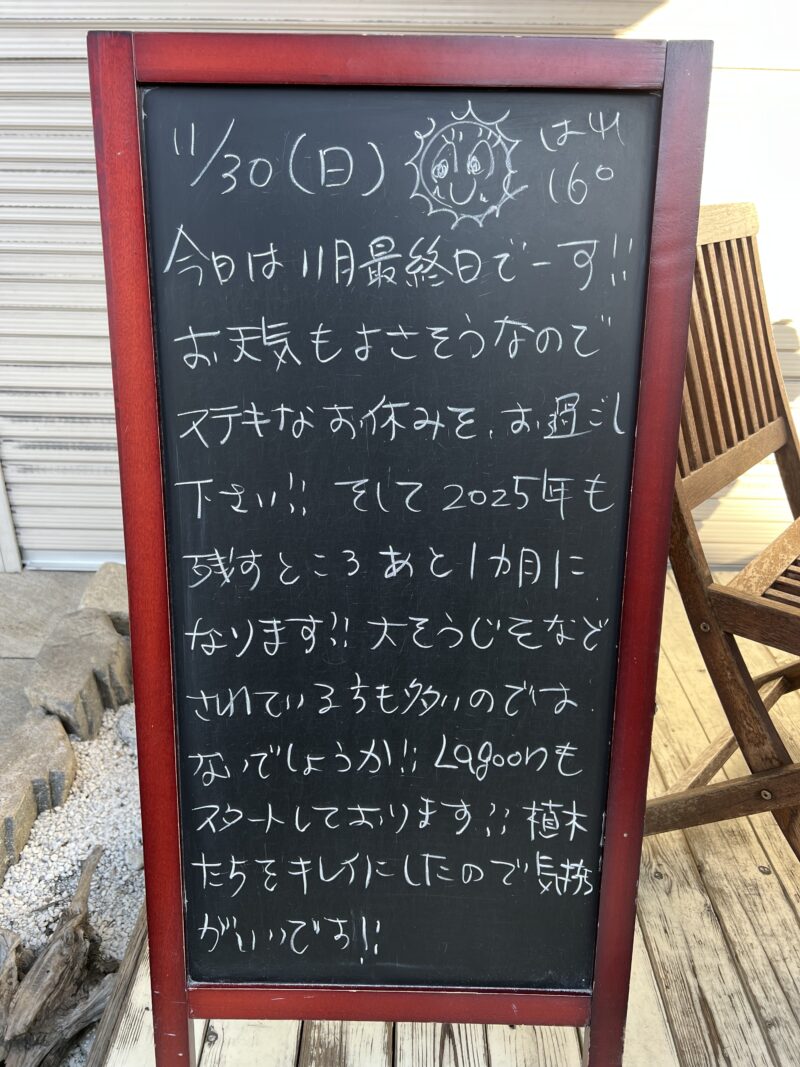 11/30(日) はれ
16°
今日は11月最終日でーす!!
お天気もよさそうなので
ステキなお休みを、お過ごし
下さい!! そして2025年も
残すところあと1カ月に
なります!! 大そうじをなど
されている方も多いのでは
ないでしょうか!! Lagoonも
スタートしております!! 植木
たちをキレイにしたので気持
がいいです!!